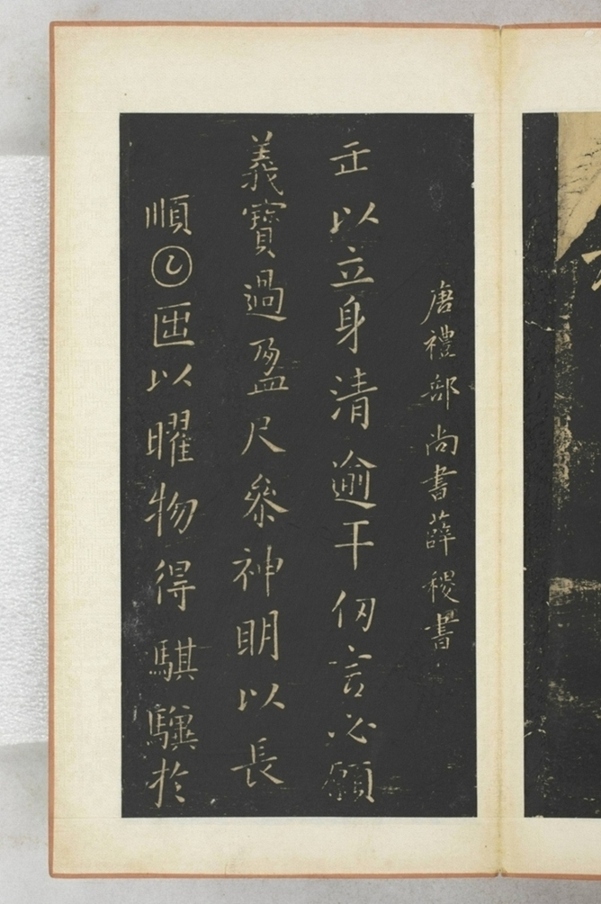 唐禮部尚書薛稷書
以立身清逾千仞言必顧
義寶過盈尺叅神眀以長
順𡆠𠥱以曜物得騏驥於